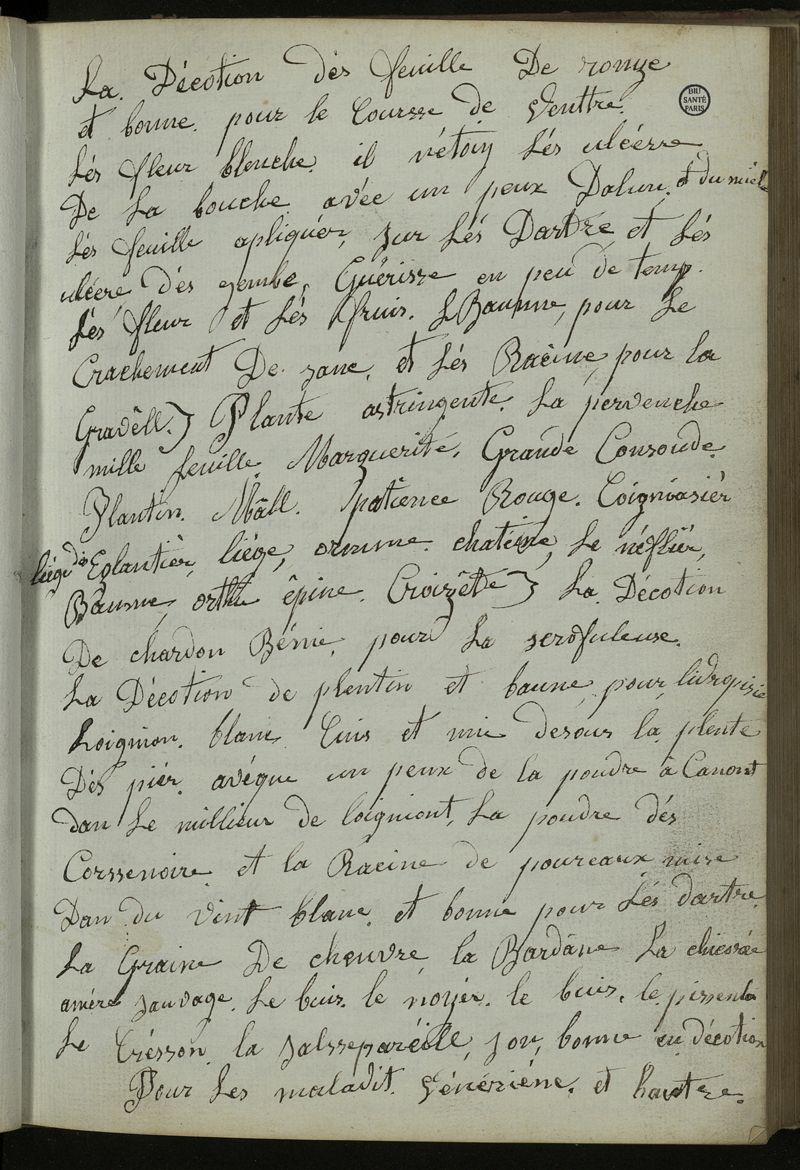 La Décotion dés feuille De ronze
et bonne. pour le Coursse de Venttre.
BIU
SANTÉ
PARIS
Lés fleur blenche. il nétoiy Lés ulcérre
De La bouche avée un peux Dalun. et du miel
Lés feuille apliquér, sur Lés Dartre et Lés
ulcére dés jembe, Guérisse en peu de temp.
Lés fleur et Lés fruis. L Baumne, pour Le
Crachement De sanc, et Lés Racine, pour la
Gravêll.} Plante astringente. La pervenche
mille feuille. Marguerite. Grande Consoude.
Plantin. Mâll. patience Rouge. Coigniasiér
liége dè Eglantiér, liége, ormme. chateine, Le néfliér,
Baumne, ortie épine. Croizéte} La Décotion
De chardon Bénie, pour La scrofuleuse.
La Décotion de plentin et baune pour, lidropisie
Loignion. blanc Cuis et mie desous la plente
Dés piér. avéque un peux de la poudre à Canont
dan Le millieux de loigniont, La poudre dés
Corssenoire et la Racine de poureaux mise
Dan du vint blanc. et bonne pour Lés dartre.
La Graine De chenvre, la Bardâne La chicorée
amére sauvage. Le buis. le noyér. le buis. le pissenli
Le Crésson, la salssepareille, son, bonne en décotion
Pour Les maladit. Vénériéne. et hautre.